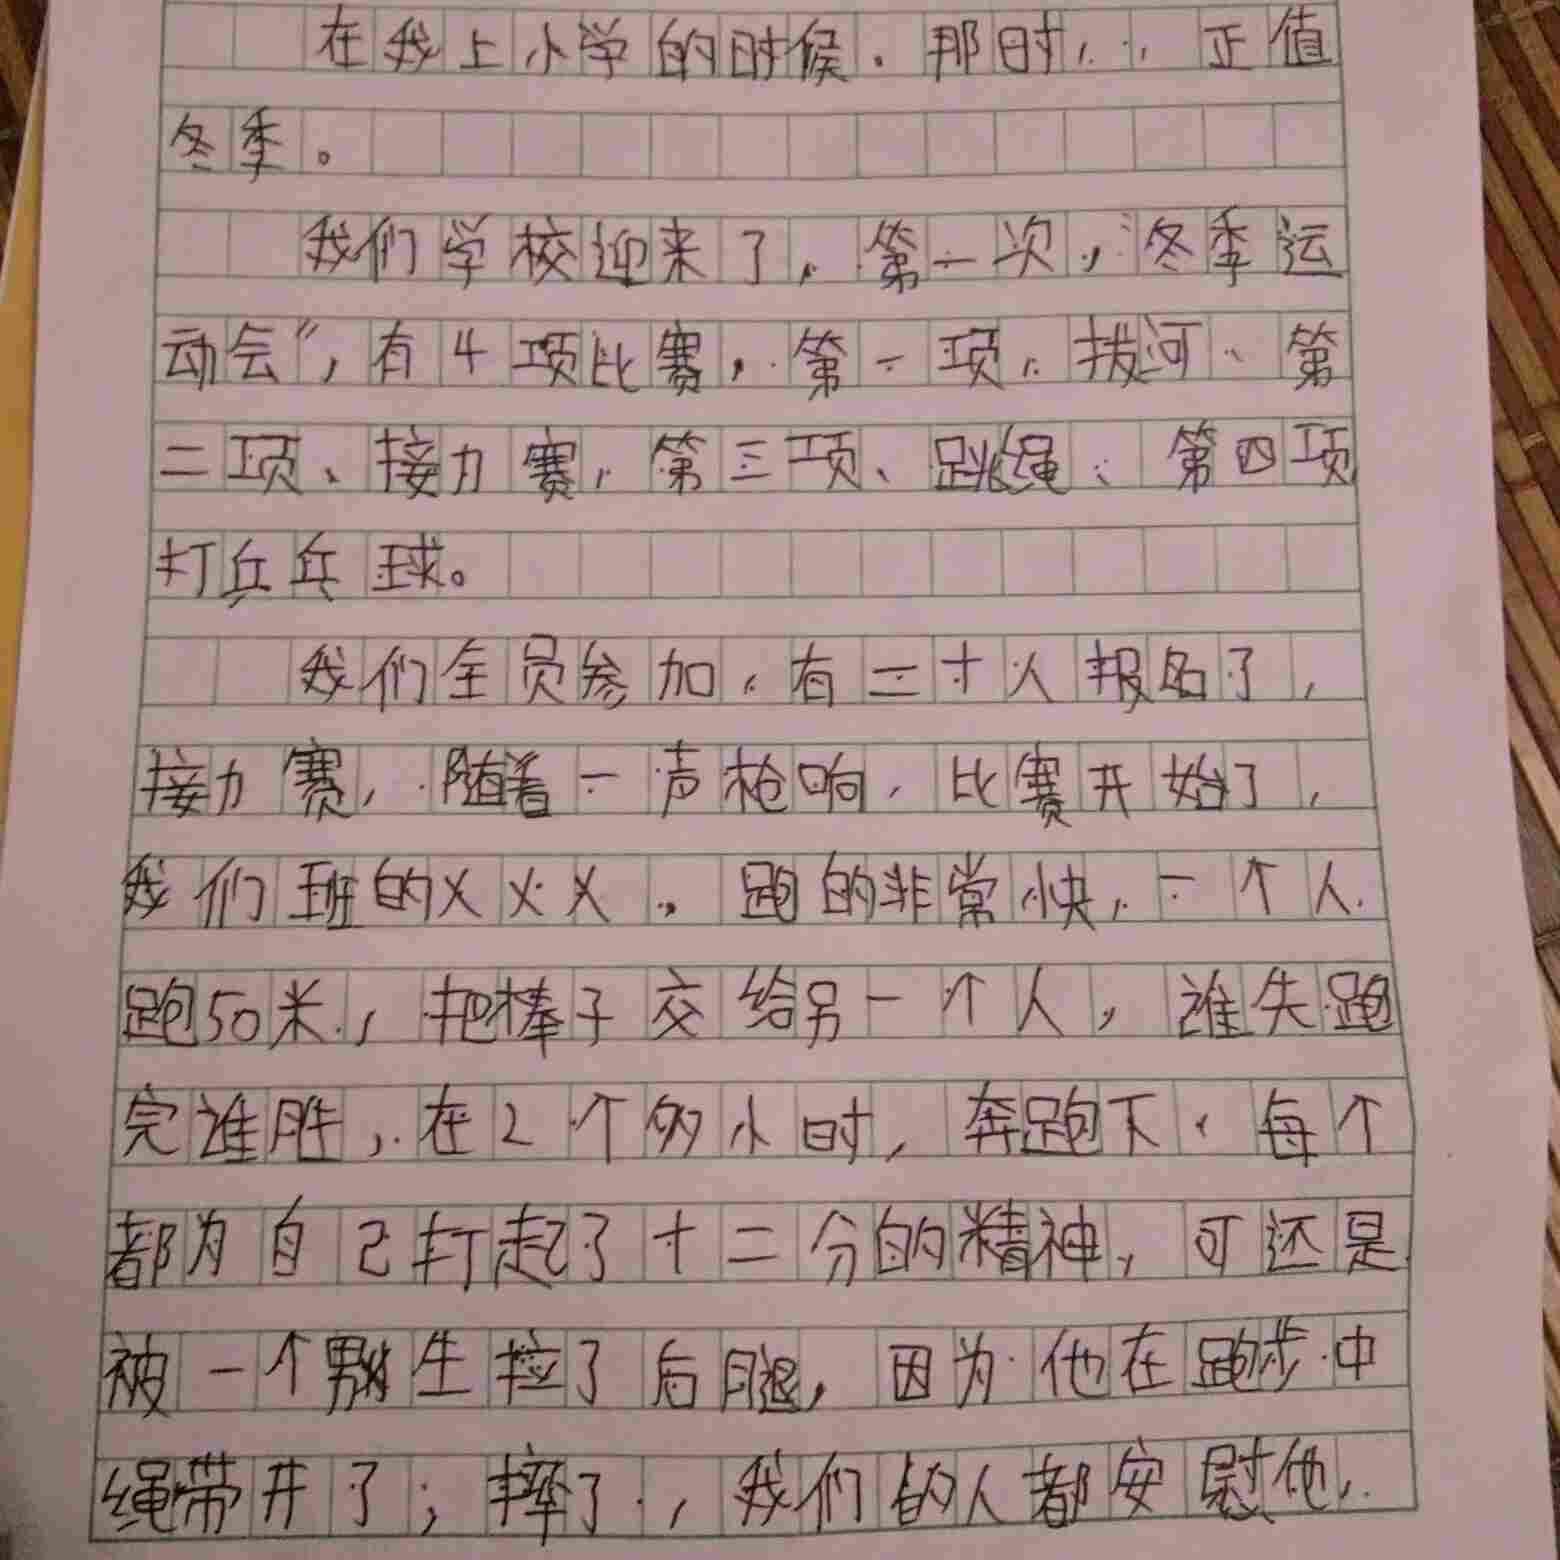 在我上小学的时候.那时,.,正值
冬季。
我们学校迎来了,第一次,“冬季运
动会”,有4项比赛,第一项,拔河、第
二项、接力赛,第三项、跳绳、第四项
打乒乓球。
我们全员参加,有二十人报名了,
接力赛,随着一声枪响,比赛开始了,
我们班的XXX,跑的非常快,一个人
跑50米,把棒子交给另一个人,谁先跑
完谁胜,在2个多小时,奔跑下,每个
都为自己打起了十二分的精神,可还是
被一个男生拉了后腿,因为他在跑步中
绳带开了;摔了,我们的人都安慰他,